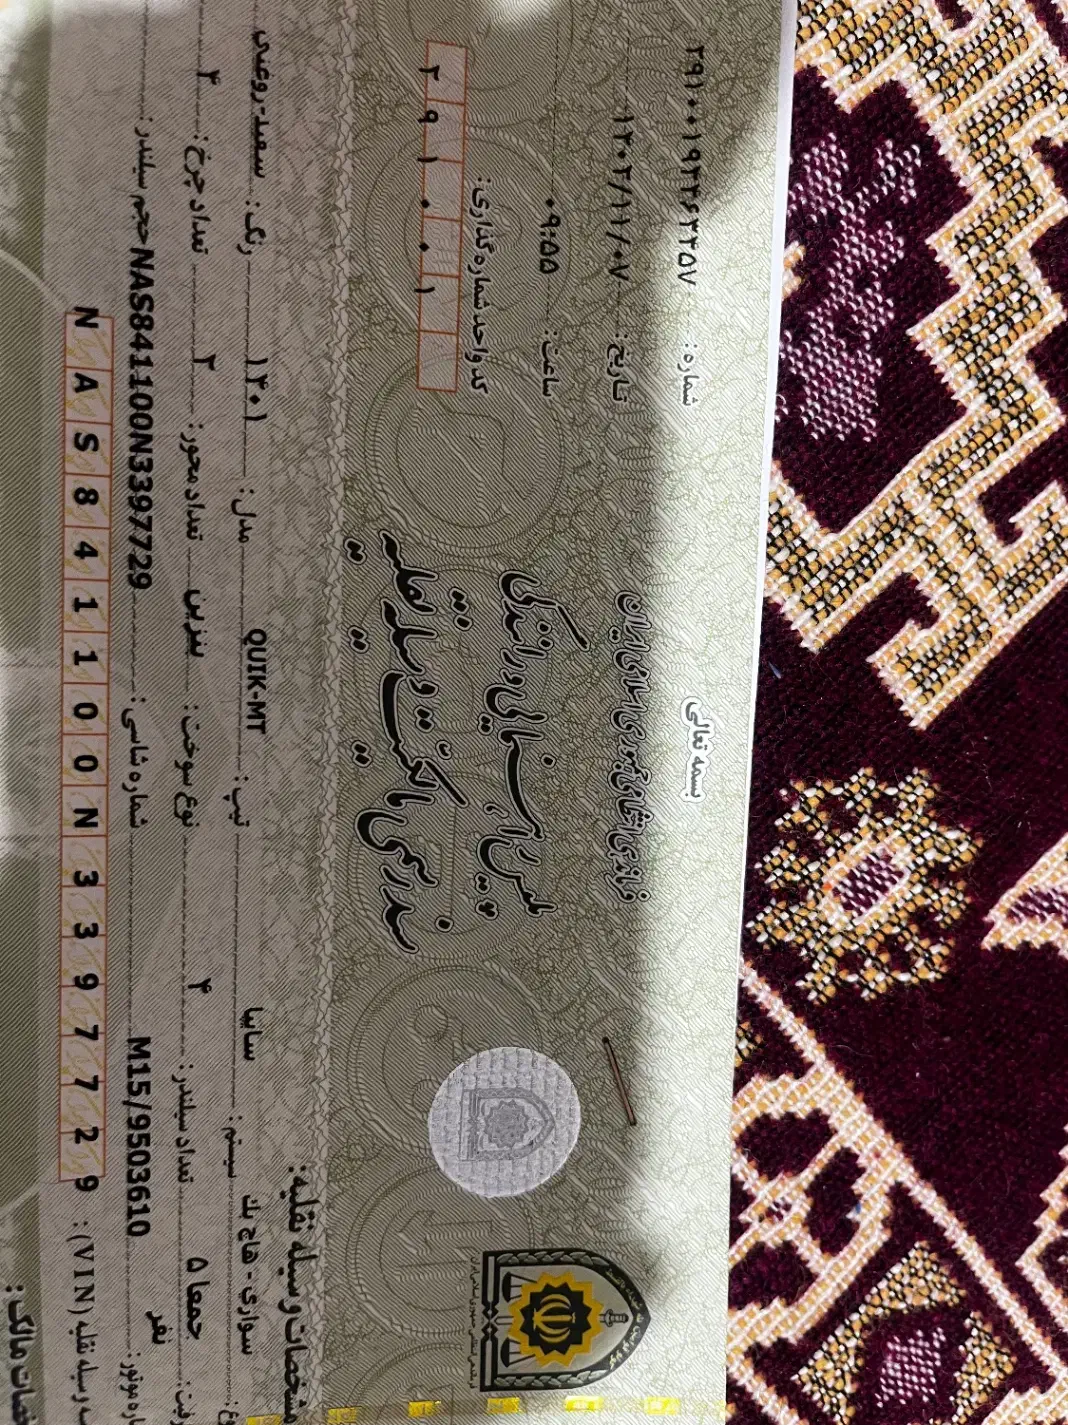 بسمه تعالی
شماره: ۲۹۱۰۰۱۹۳۳۶۳۳۵۷
فرماندهی انتظامی جمهوری اسلامی ایران
تاریخ: ۱۴۰۳/۱۱/۰۷
پلیس راهنمایی و رانندگی
ساعت: ۰۹:۵۵
سند رسمی مالکیت وسیله نقلیه
کد واحد شماره گذاری:
۲ ۹ ۱ ۰ ۰ ۱
مشخصات وسیله نقلیه:
سواری - هاچ بک سیستم: سایپا تیپ: QUIK-MT مدل: ۱۴۰۱ رنگ: سفید-روغنی
جمعا ۵ نفر تعداد سیلندر: ۴ نوع سوخت: بنزین تعداد محور: ۲ تعداد چرخ: ۴
M15/9503610 شماره شاسی: NAS841100N3397729 حجم سیلندر:
وسیله نقلیه (VIN): N A S 8 4 1 1 0 0 N 3 3 9 7 7 2 9
مالک: